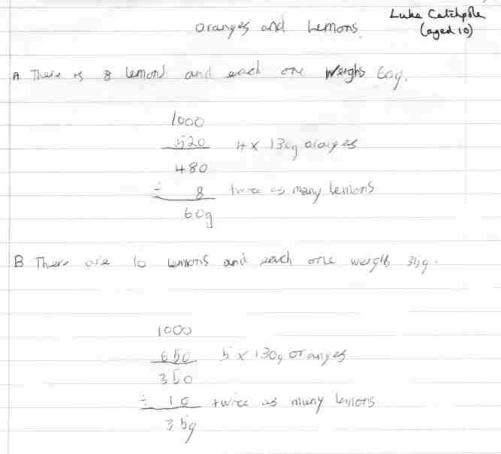 Luke Catchpole
oranges and Lemons (aged 10)
A There is 8 lemons and each one weighs 60g.
1000
520 4 x 130g oranges
480
÷ 8 twice as many lemons
60g
B There are 10 lemons and each one weighs 35g.
1000
650 5 x 130g oranges
350
÷ 10 twice as many lemons
35g